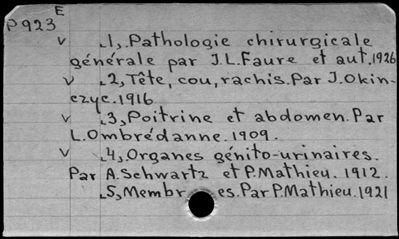 E
P923
v ⌞1,.Pathologie chirurgicale
générale par J.L.Faure et aut.1926
v ⌞2,Tête, cou, rachis.Par J.Okin-
czyc.1916
v ⌞3,Poitrine et abdomen.Par
L.Ombrédanne.1909.
v ⌞4,Organes génito-urinaires.
Par A.Schwartz et P.Mathieu. 1912.
⌞5,Membr es.Par P.Mathieu.1921